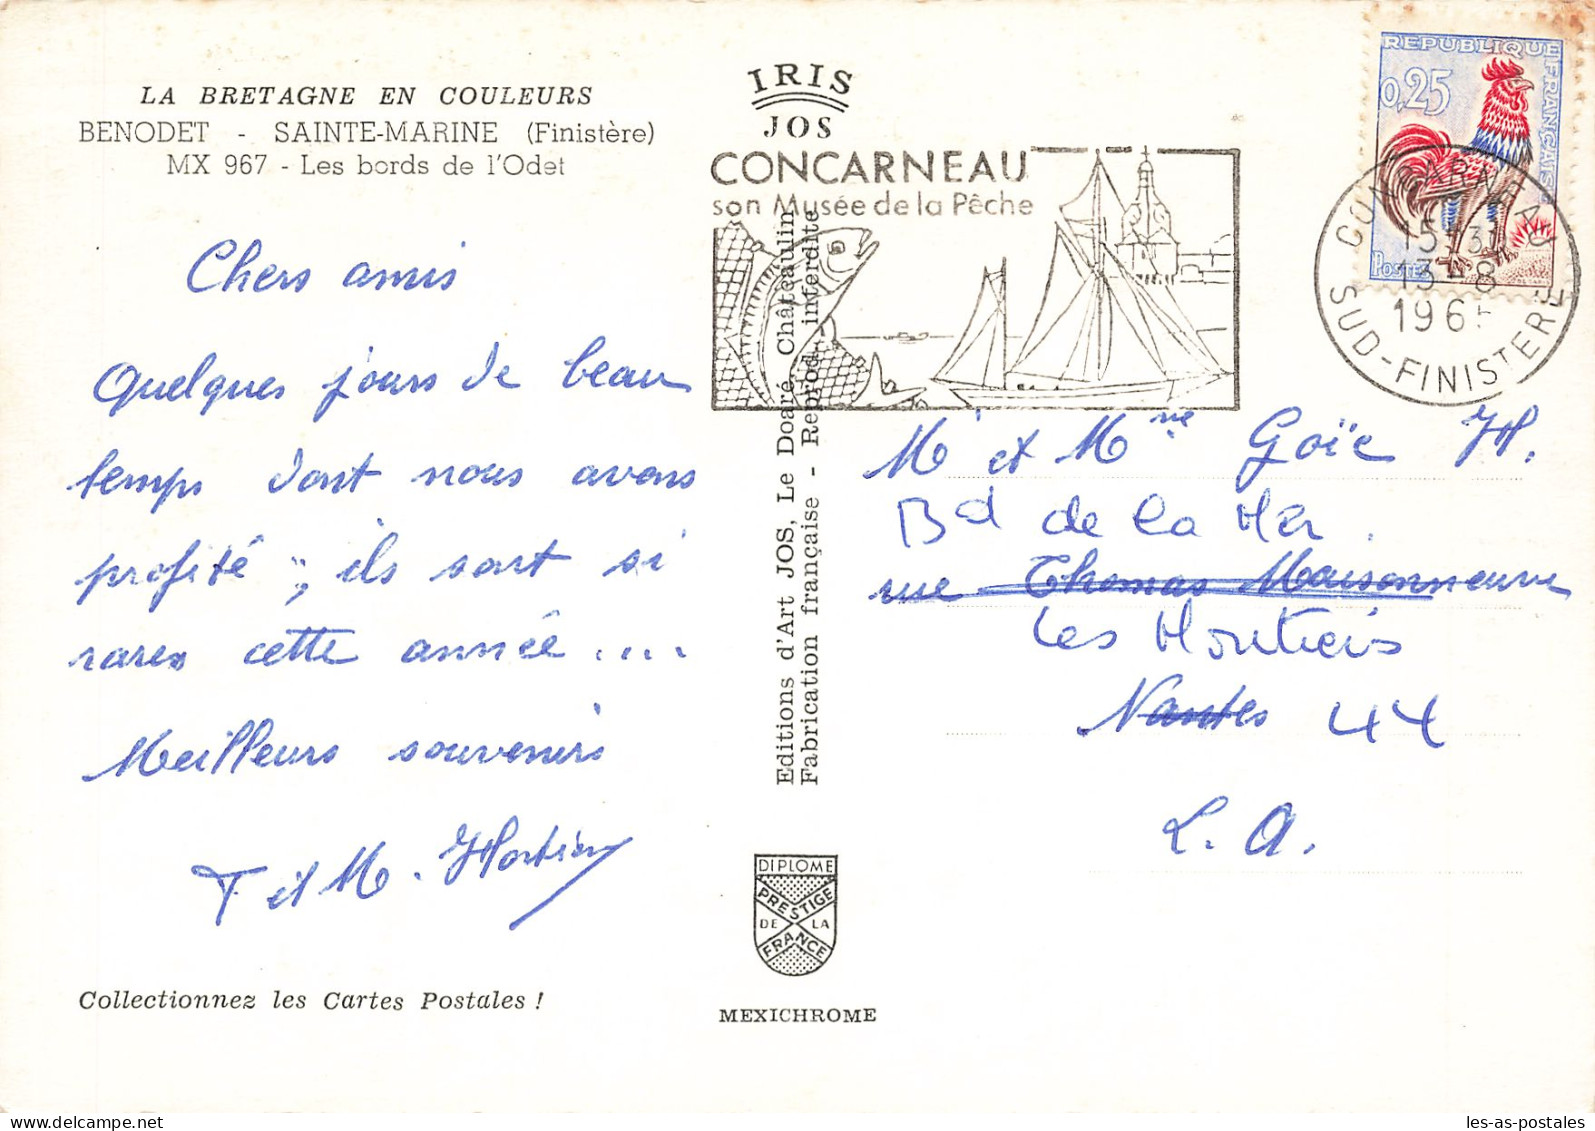 LA BRETAGNE EN COULEURS
BENODET - SAINTE-MARINE (Finistère)
MX 967 - Les bords de l'Odet
Chers amis
Quelques jours de beau
temps dont nous avons
profité ; ils sont si
rares cette année....
Meilleurs souvenirs
T et M.
Collectionnez les Cartes Postales !
IRIS
JOS
CONCARNEAU
son Musée de la Pêche
Editions d'Art JOS, Le Doaré, Châteaulin
Fabrication française - Reprod. interdite
DIPLOME
PRESTIGE
DE LA
FRANCE
MEXICHROME
REPUBLIQUE FRANÇAISE
0,25
POSTES
CONCARNEAU
13-8
196
SUD-FINISTERE
Mr et Mme Goïc H.
Bd de la Mer.
rue Thomas Maisonneuve
Les Moutiers
Nantes 44
L. A.
les-as-postales